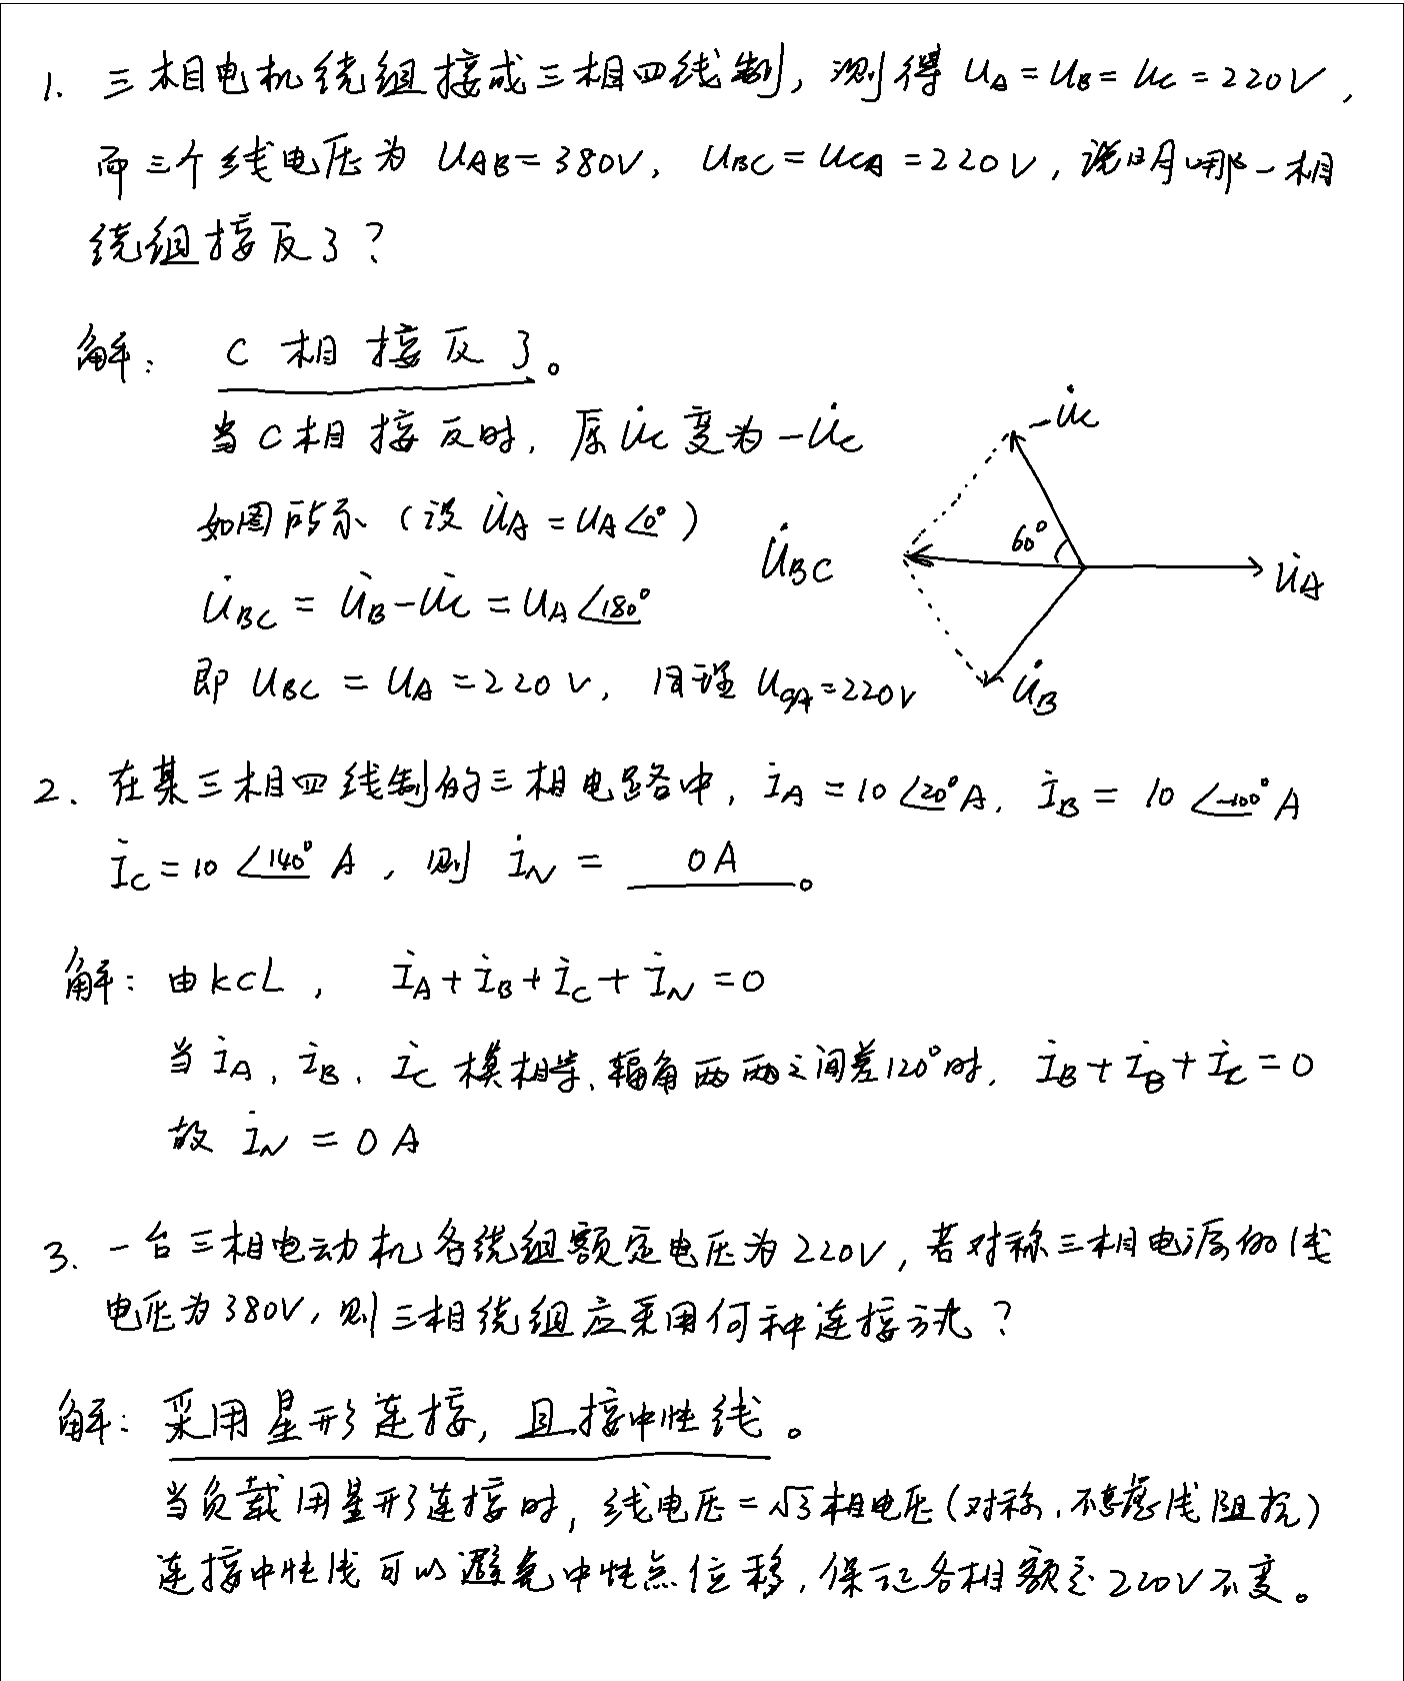 1. 三相电机绕组接成三相四线制，测得 UA = UB = UC = 220V，
而三个线电压为 UAB = 380V，UBC = UCA = 220V，说明哪一相
绕组接反了？
解： C 相 接 反 了。
当C相接反时，原 U̇C 变为 -U̇C
如图所示（设 U̇A = UA∠0°）
U̇BC = U̇B - U̇C = UA∠180°
即 UBC = UA = 220V，同理 UCA = 220V
-U̇C
60°
U̇BC
U̇A
U̇B
2. 在某三相四线制的三相电路中，İA = 10∠20°A，İB = 10∠-100°A
İC = 10∠140°A，则 İN = 0A。
解：由KCL， İA + İB + İC + İN = 0
当 İA，İB，İC 模相等，辐角两两之间差120°时，İB + İB + İC = 0
故 İN = 0A
3. 一台三相电动机各绕组额定电压为220V，若对称三相电源的线
电压为380V，则三相绕组应采用何种连接方式？
解：采用星形连接，且接中性线。
当负载用星形连接时，线电压=√3相电压（对称，不考虑线阻抗）
连接中性线可以避免中性点位移，保证各相额定220V不变。